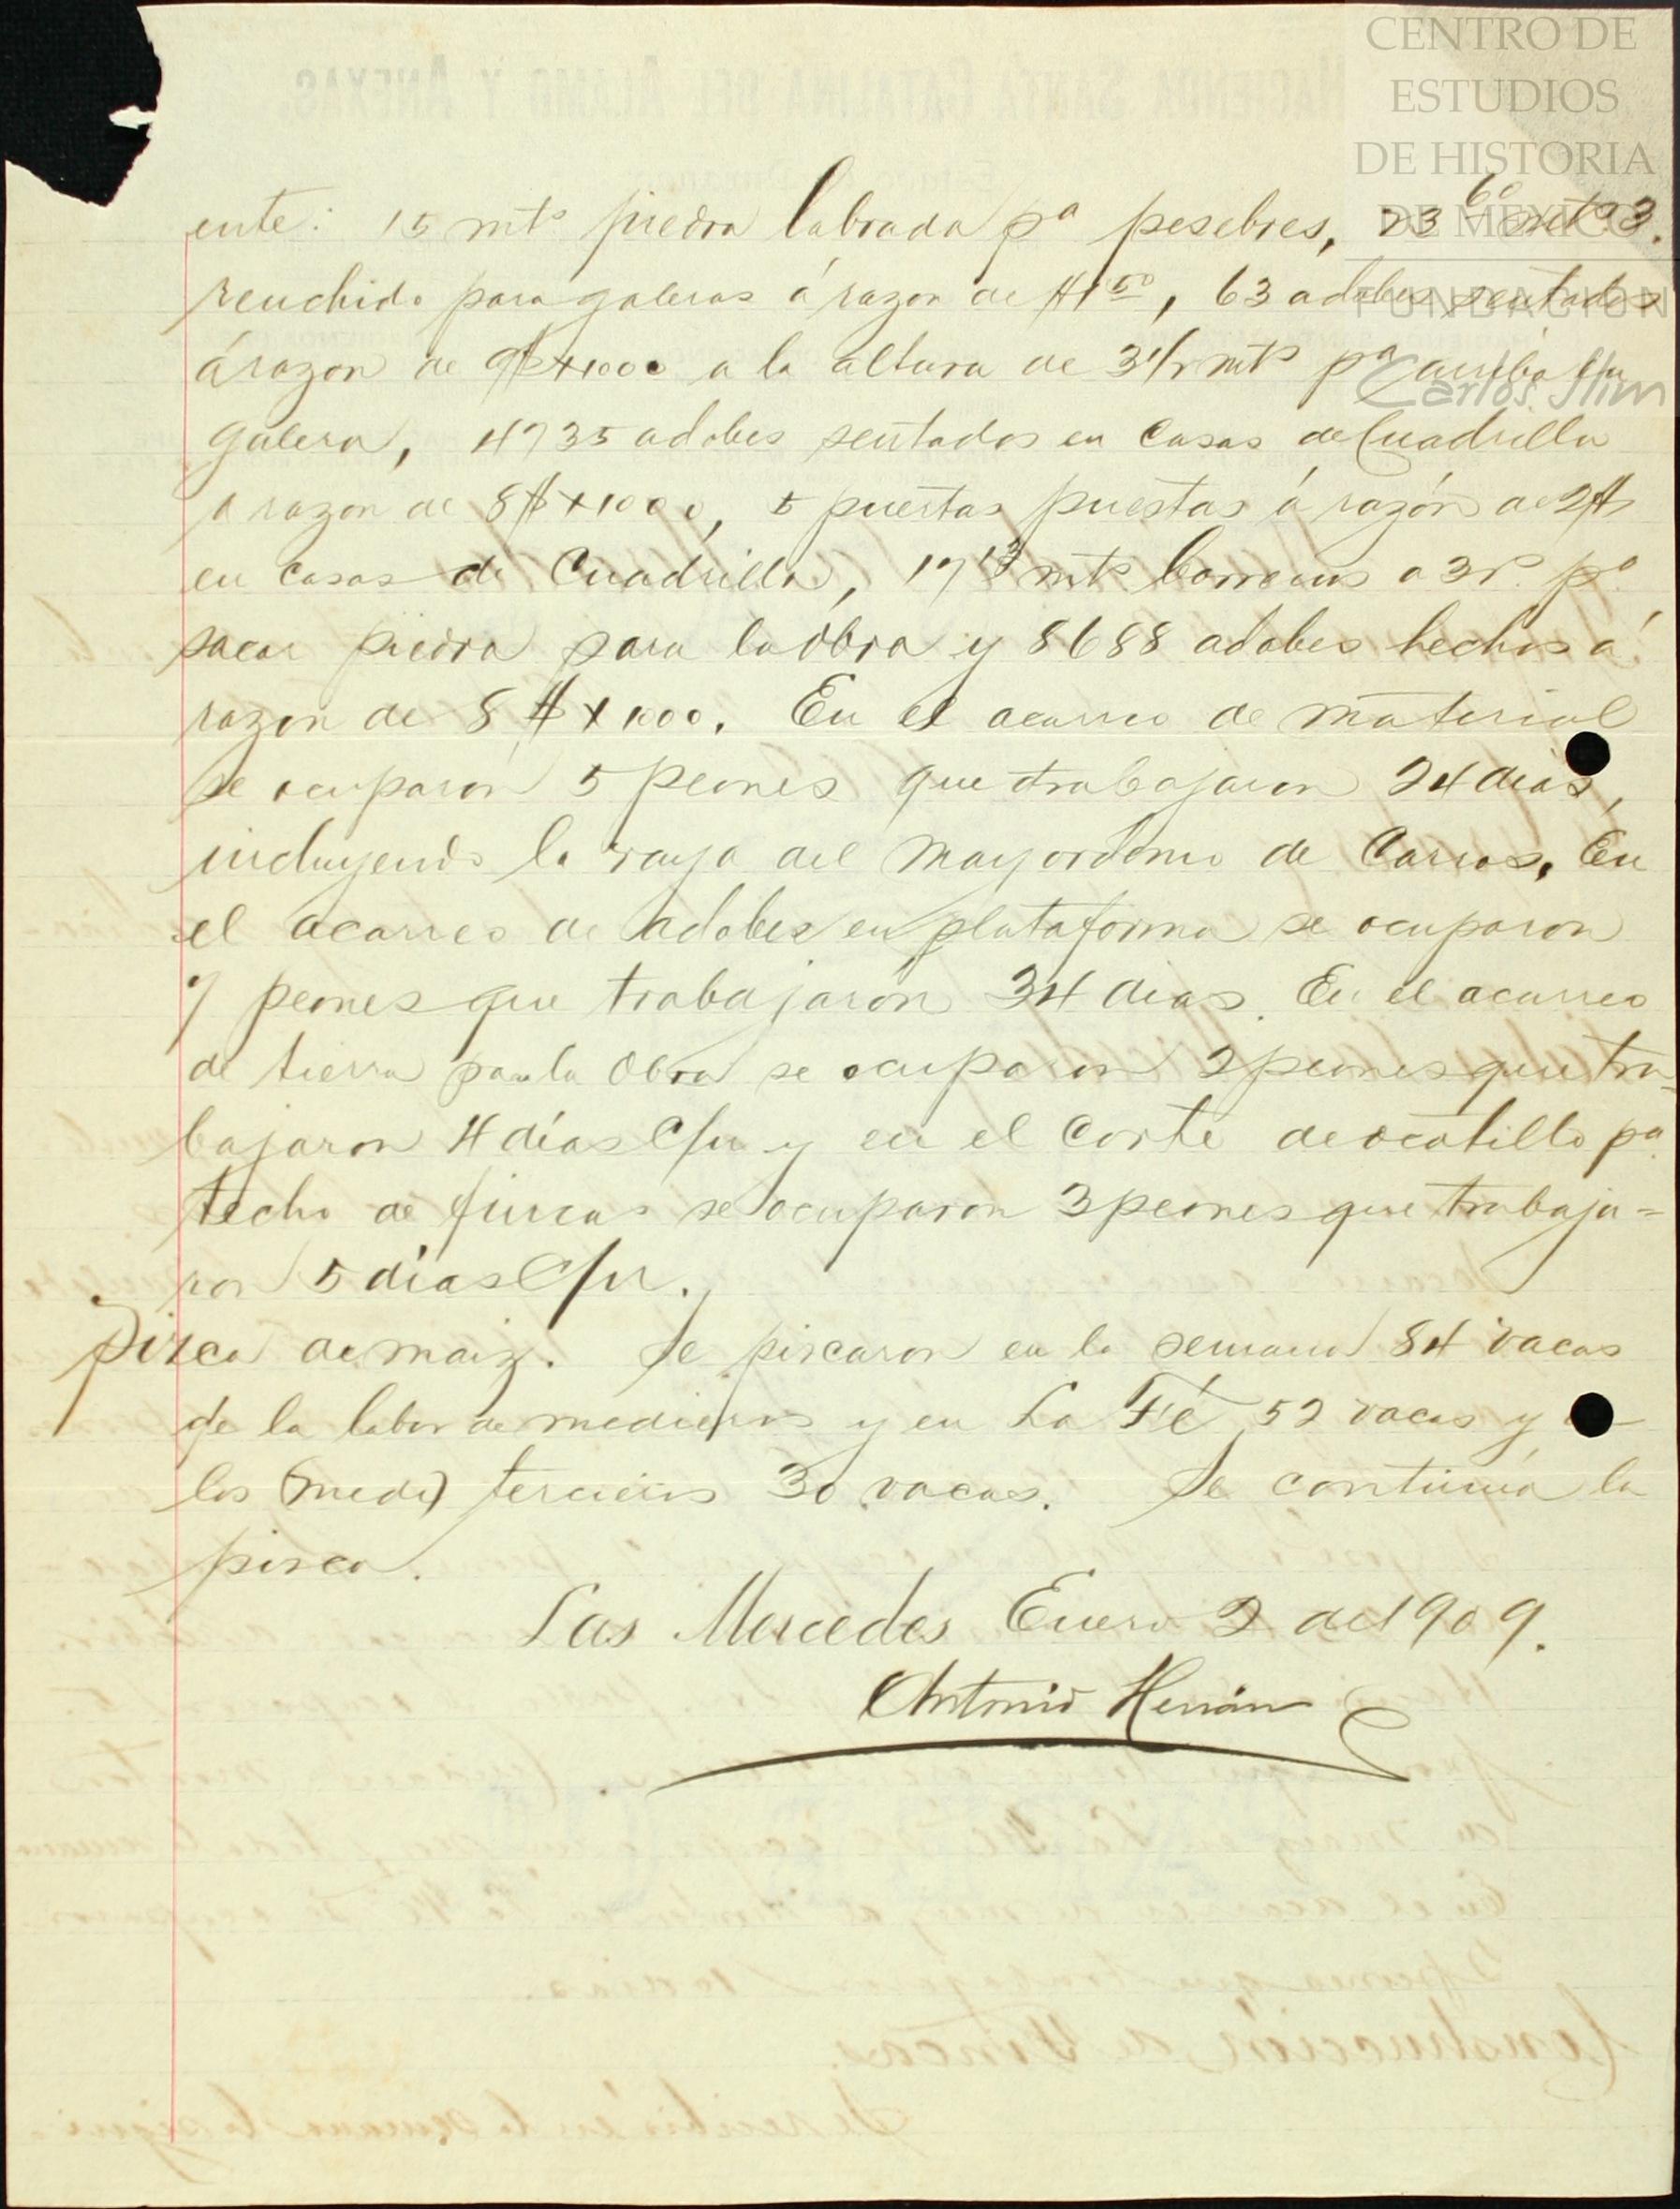 CENTRO DE
ESTUDIOS
DE HISTORIA
DE MEXICO
FUNDACION
Carlos Slim
ente: 15 mts piedra labrada pª pesebres, 23 60 mts 3.
renchido para galeras á razon de $1 50, 63 adobes sentados
á razon de 9$ x 1000 a la altura de 3 1/2 mts pª arriba en
galera, 4735 adobes sentados en Casas de Cuadrilla
a razon de 8$ x 1000, 5 puertas puestas á razón de 2$
en casas de Cuadrilla, 17 13 mts barrenos a 3 r. pª
sacar piedra para la Obra y 8688 adobes hechos á
razon de 8 $ x 1000. En el acarreo de material
se ocuparon 5 peones que trabajaron 24 dias,
incluyendo la raya del Mayordomo de Carros. En
el acarreo de adobes en plataforma se ocuparon
7 peones que trabajaron 34 dias. En el acarreo
de tierra para la Obra se ocuparon 2 peones que tra=
bajaron 4 días C/u y en el Corte de ocotillo pª
techo de fincas se ocuparon 3 peones que trabaja=
ron 5 días C/u.
Pizca de maiz. Se piscaron en la semana 84 vacas
de la labor de medieros y en La Fé 52 vacas y
los (medi) tercieros 30 vacas. Se continúa la
pisca.
Las Mercedes Enero 2 del 1909.
Antonio Hernán